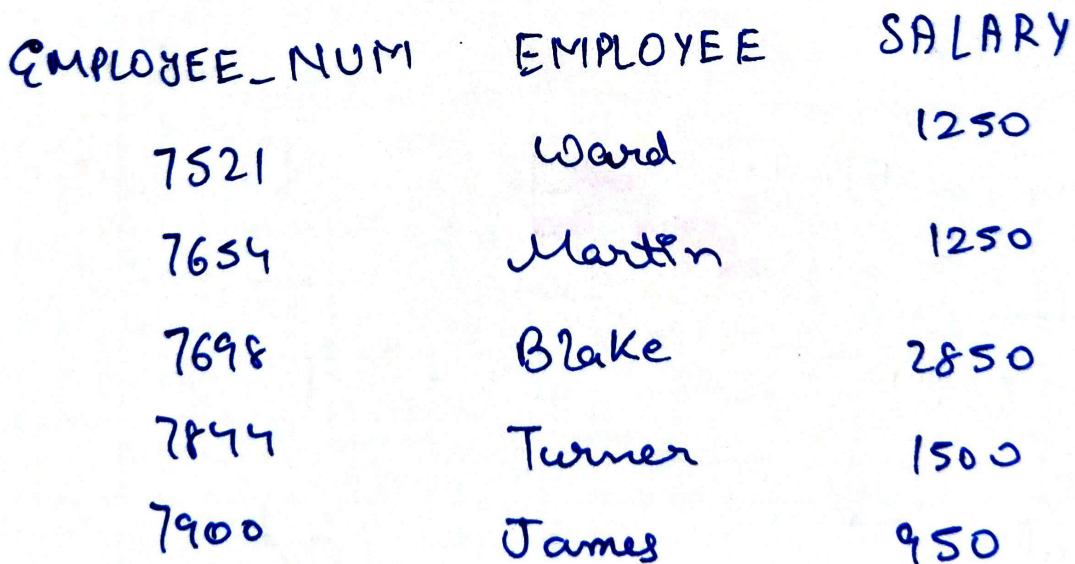 EMPLOYEE_NUM EMPLOYEE SALARY
7521 Ward 1250
7654 Martin 1250
7698 Blake 2850
7844 Turner 1500
7900 James 950